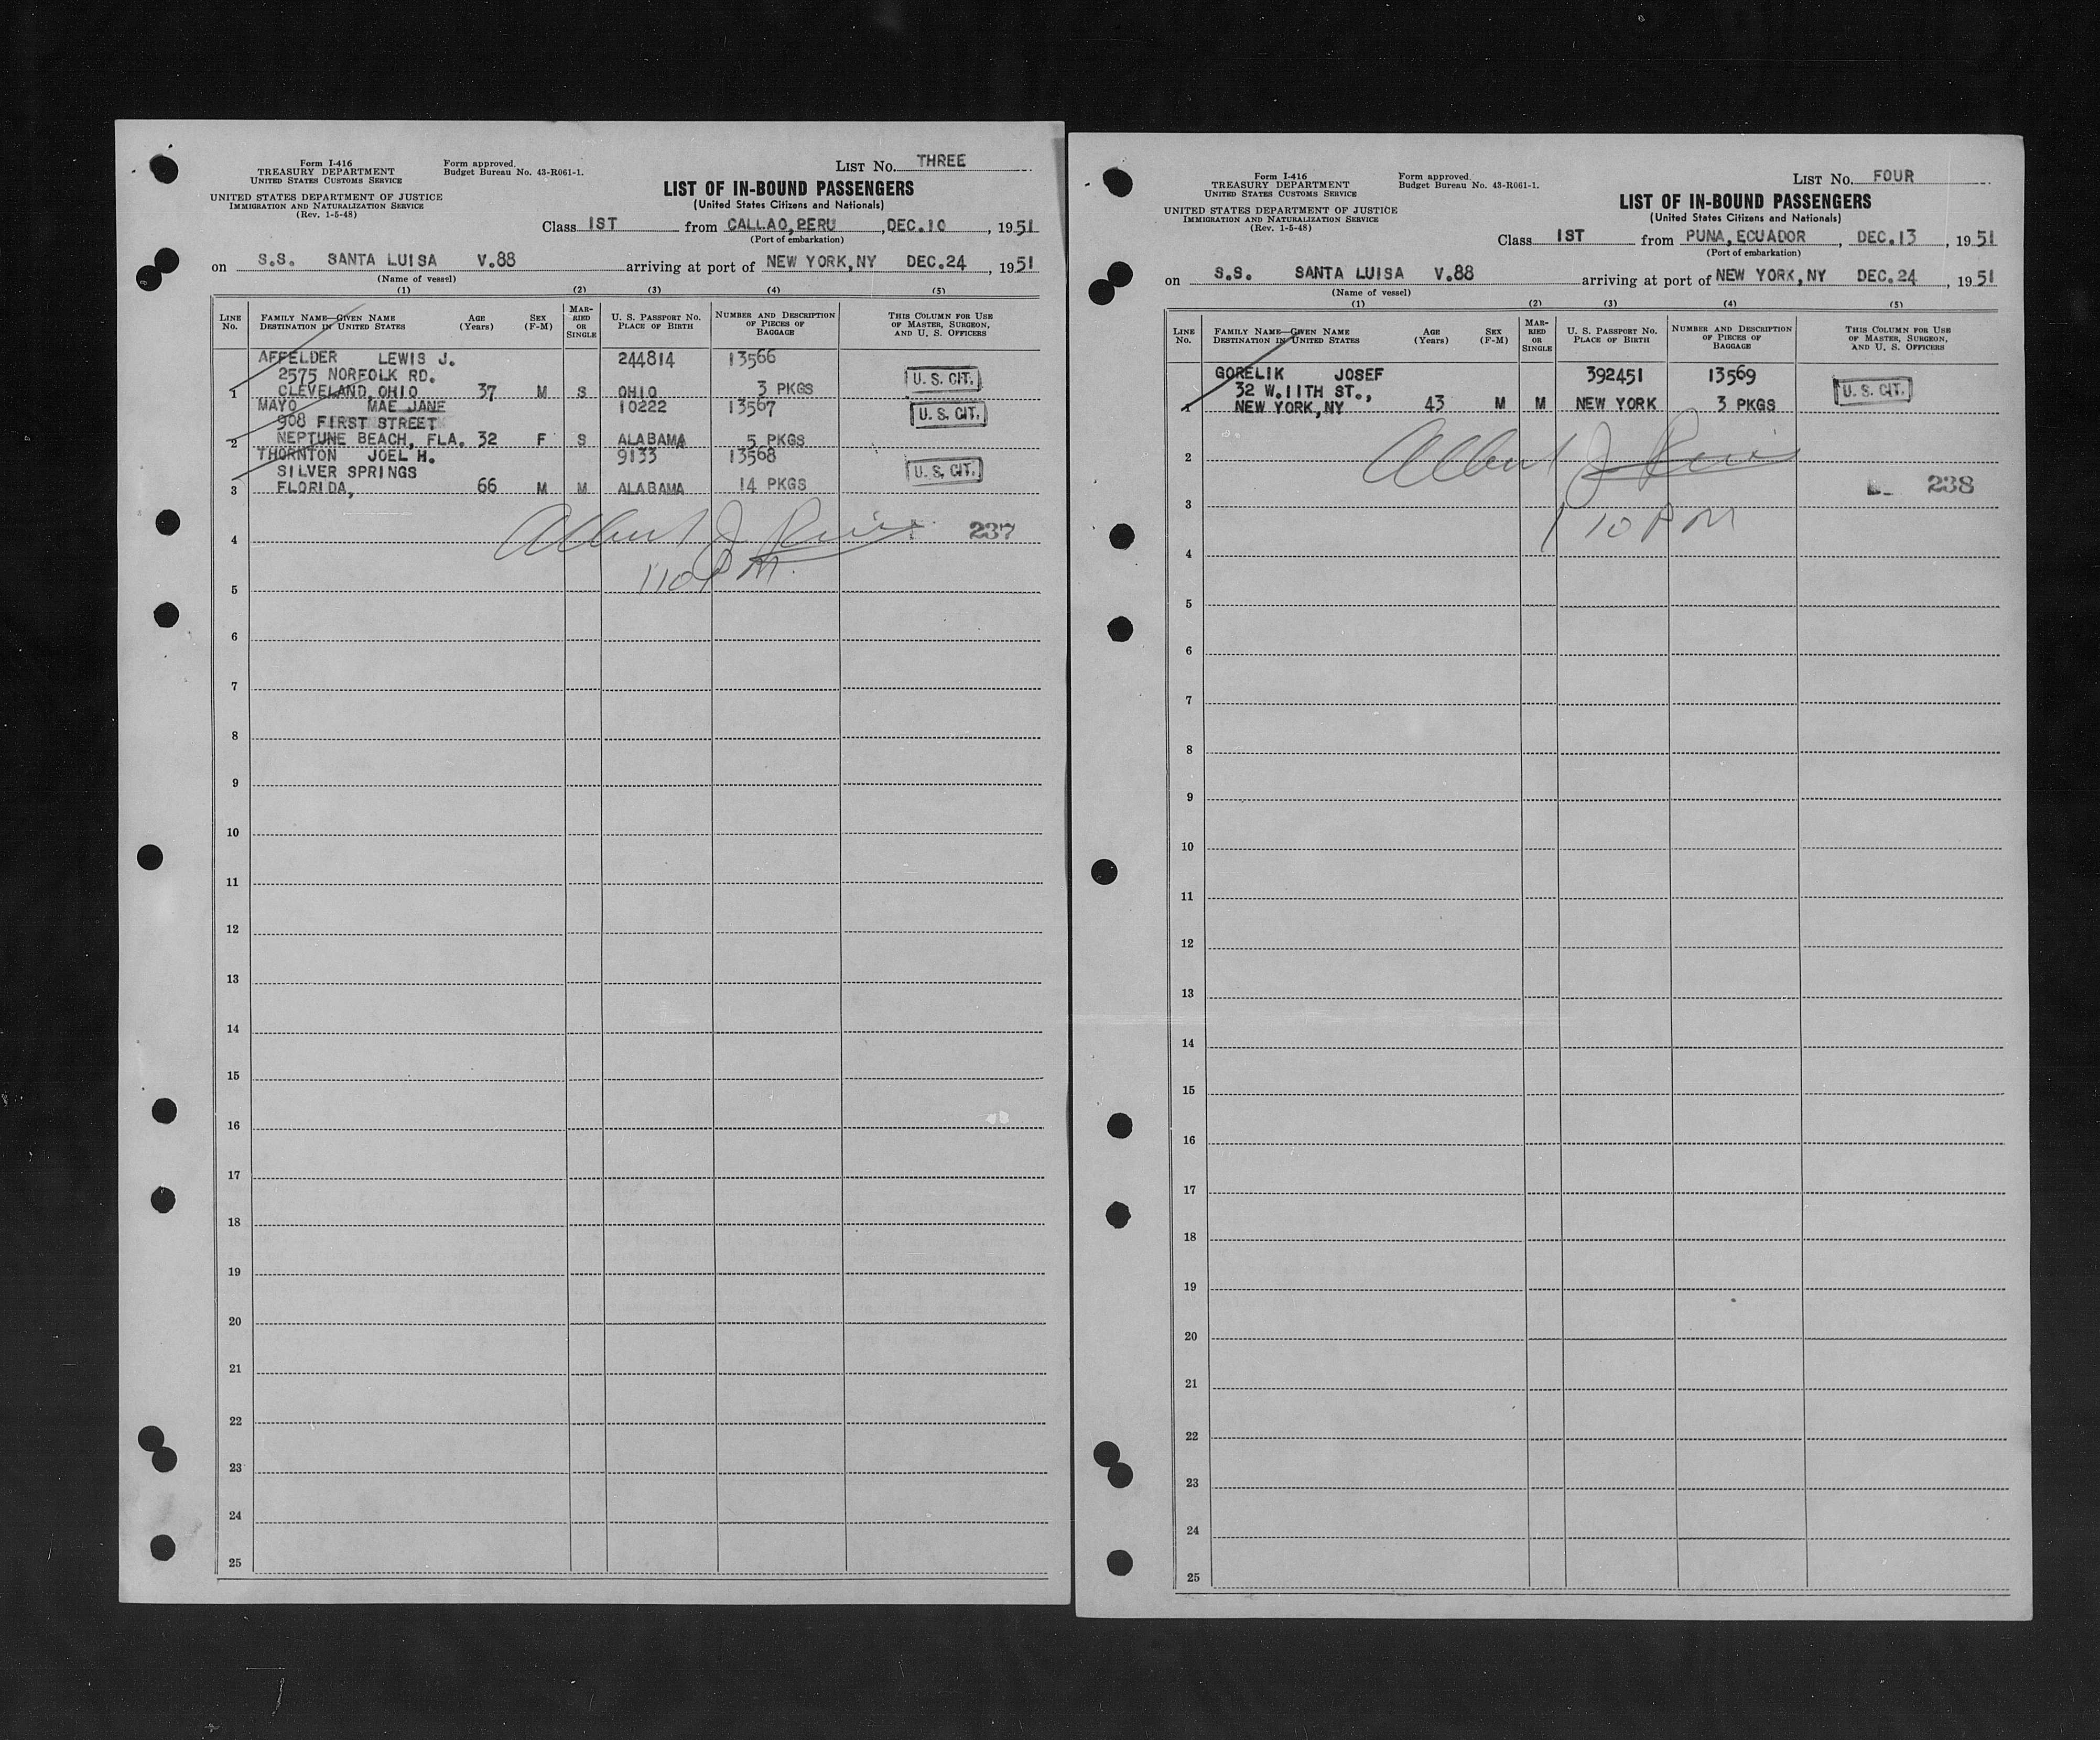 Form I-416
TREASURY DEPARTMENT
UNITED STATES CUSTOMS SERVICE
UNITED STATES DEPARTMENT OF JUSTICE
IMMIGRATION AND NATURALIZATION SERVICE
(Rev. 1-5-48)
Form approved.
Budget Bureau No. 43-R061-1.
LIST No. THREE
LIST OF IN-BOUND PASSENGERS
(United States Citizens and Nationals)
Class 1ST from CALLAO, PERU, DEC. 10, 1951
(Port of embarkation)
on S.S. SANTA LUISA V.88 arriving at port of NEW YORK, NY DEC.24, 1951
(Name of vessel)
(1) (2) (3) (4) (5)
LINE No. FAMILY NAME—GIVEN NAME DESTINATION IN UNITED STATES AGE (Years) SEX (F-M) MARRIED OR SINGLE U. S. PASSPORT No. PLACE OF BIRTH NUMBER AND DESCRIPTION OF PIECES OF BAGGAGE THIS COLUMN FOR USE OF MASTER, SURGEON, AND U. S. OFFICERS
AFFELDER LEWIS J. 244814 13566
2575 NORFOLK RD. U. S. CIT.
1 CLEVELAND, OHIO 37 M S OHIO 3 PKGS
MAYO MAE JANE 10222 13567 U. S. CIT.
908 FIRST STREET
2 NEPTUNE BEACH, FLA. 32 F S ALABAMA 5 PKGS
THORNTON JOEL H. 9133 13568
SILVER SPRINGS U. S. CIT.
3 FLORIDA, 66 M M ALABAMA 14 PKGS
4 Albert J. 237
110 PM.
5
6
7
8
9
10
11
12
13
14
15
16
17
18
19
20
21
22
23
24
25
Form I-416
TREASURY DEPARTMENT
UNITED STATES CUSTOMS SERVICE
UNITED STATES DEPARTMENT OF JUSTICE
IMMIGRATION AND NATURALIZATION SERVICE
(Rev. 1-5-48)
Form approved.
Budget Bureau No. 43-R061-1.
LIST No. FOUR
LIST OF IN-BOUND PASSENGERS
(United States Citizens and Nationals)
Class 1ST from PUNA, ECUADOR, DEC.13, 1951
(Port of embarkation)
on S.S. SANTA LUISA V.88 arriving at port of NEW YORK, NY DEC.24, 1951
(Name of vessel)
(1) (2) (3) (4) (5)
LINE No. FAMILY NAME—GIVEN NAME DESTINATION IN UNITED STATES AGE (Years) SEX (F-M) MARRIED OR SINGLE U. S. PASSPORT No. PLACE OF BIRTH NUMBER AND DESCRIPTION OF PIECES OF BAGGAGE THIS COLUMN FOR USE OF MASTER, SURGEON, AND U. S. OFFICERS
GORELIK JOSEF 392451 13569
32 W.11TH ST., U. S. CIT.
1 NEW YORK, NY 43 M M NEW YORK 3 PKGS
2 Albert J.
238
3 110 PM
4
5
6
7
8
9
10
11
12
13
14
15
16
17
18
19
20
21
22
23
24
25